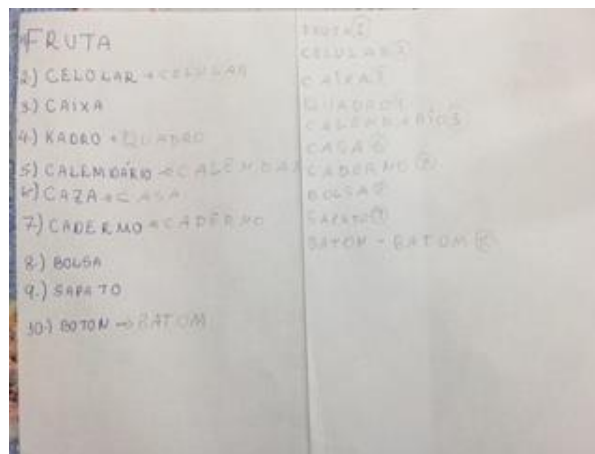 FRUTA
2) CELOLAR → CELULAR
3) CAIXA
4) KADRO → QUADRO
5) CALEMDÁRIO →
6) CAZA → CASA
7) CADERMO → CADERNO
8) BOLSA
9.) SAPATO
10.) BOTON → BATOM
FRUTA 1
CELULAR 2
CAIXA 3
QUADRO 4
CASA 6
CADERNO 7
BOLSA 8
SAPATO 9
BATON - BATOM 10